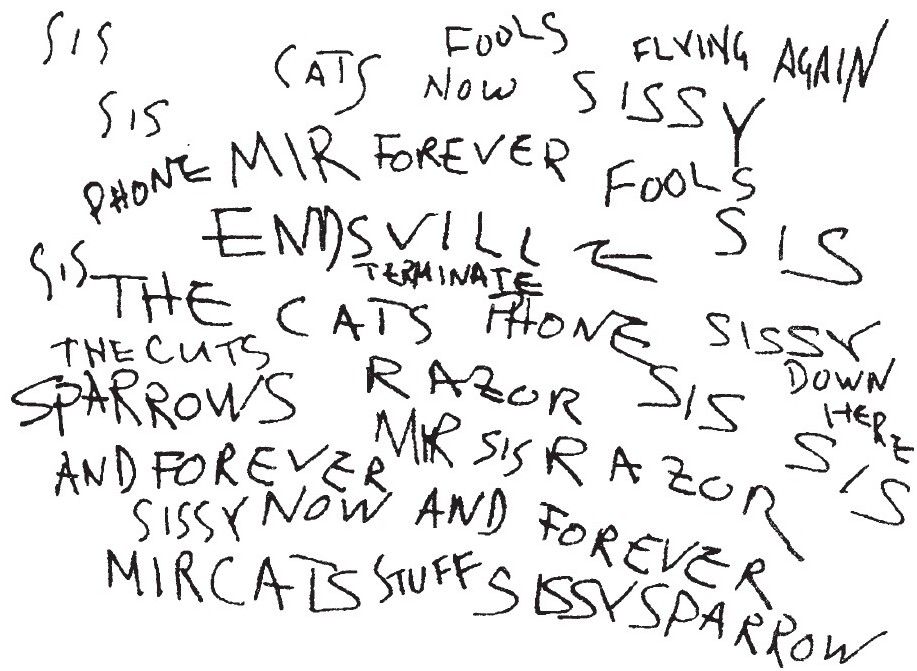 SIS
CATS FOOLS FLYING AGAIN
SIS NOW SISSY
PHONE MIR FOREVER FOOLS
ENDSVILL ← SIS
SIS TERMINATE
THE CATS PHONE SISSY
THE CUTS DOWN
SPARROWS RAZOR SIS HERE
AND FOREVER MIR SIS RAZOR SIS
SISSY NOW AND FOREVER
MIR CATS STUFF SISSY SPARROW